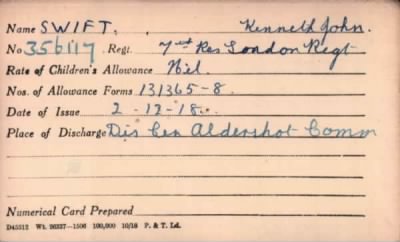 Name SWIFT, Kenneth John.
No 356117 Regt. 7th Res London Regt
Rate of Children's Allowance Nil.
Nos. of Allowance Forms 131365-8.
Date of Issue 2-12-18.
Place of Discharge Dis Cen Aldershot Comm
Numerical Card Prepared
D45512 Wt. 26337—1506 100,000 10/18 P. & T. Ld.